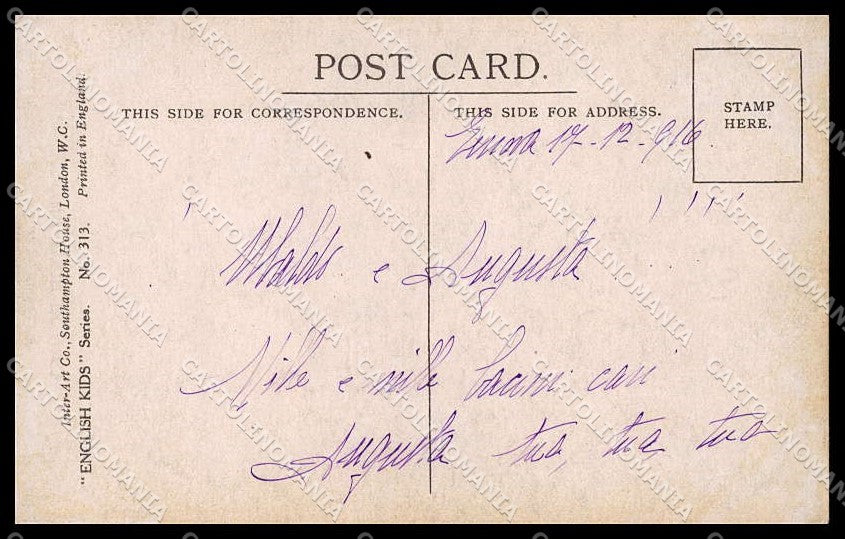 POST CARD.
THIS SIDE FOR CORRESPONDENCE.
THIS SIDE FOR ADDRESS.
STAMP
HERE.
17-12-916
e Augusta
e mille
Augusta tua, tua tua
Inter-Art Co., Southampton House, London, W.C.
"ENGLISH KIDS" Series. No. 313. Printed in England.
CARTOLINOMANIA